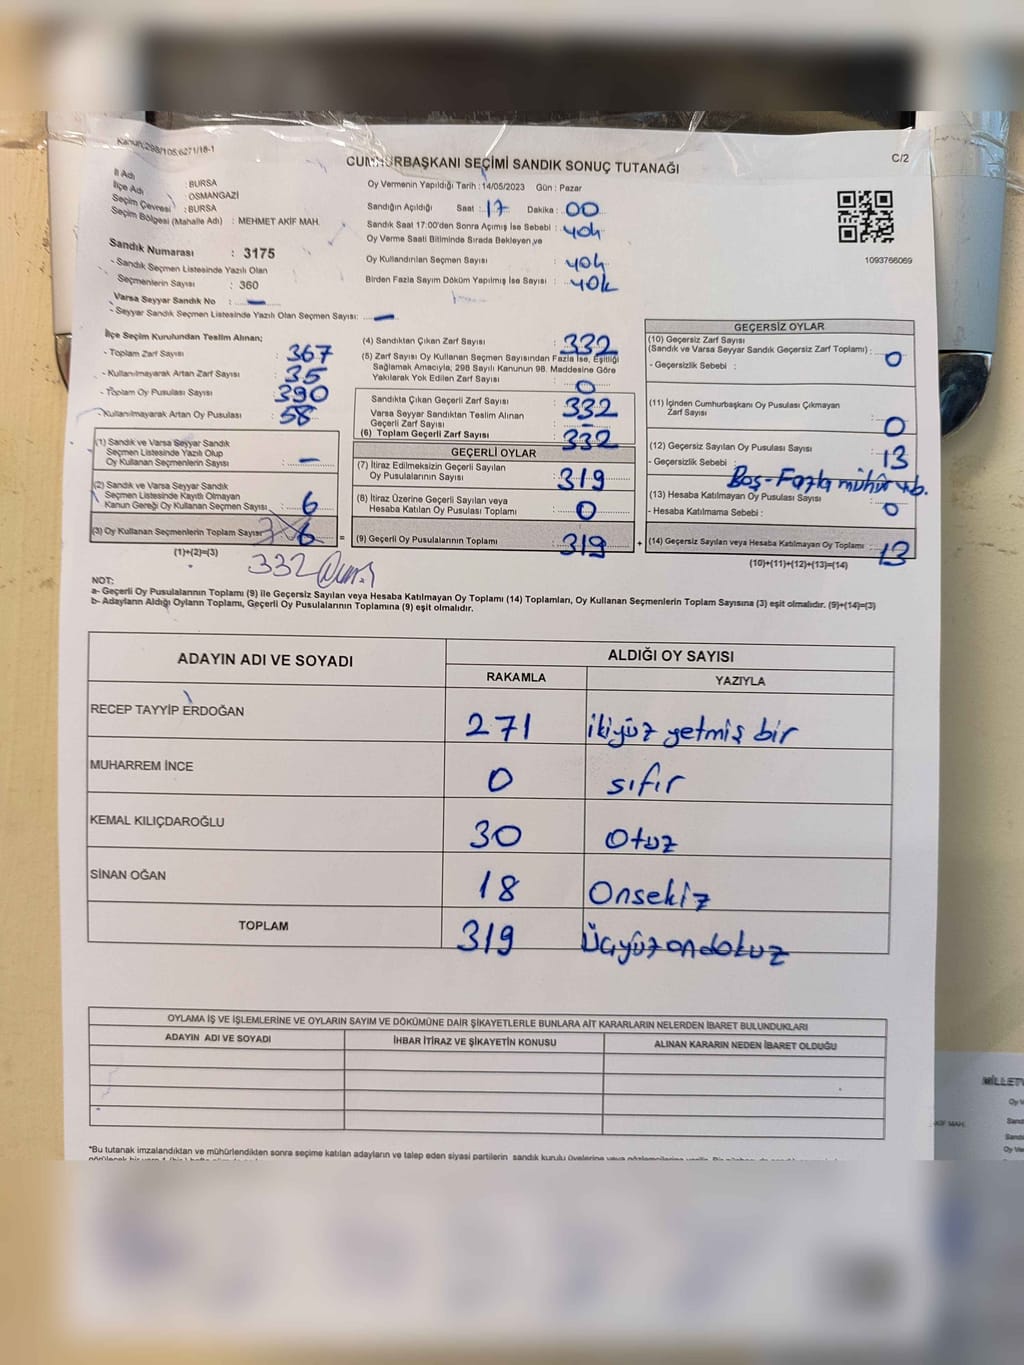 Kanun;298/105;6271/18-1
CUMHURBAŞKANI SEÇİMİ SANDIK SONUÇ TUTANAĞI
C/2
İl Adı : BURSA
İlçe Adı : OSMANGAZİ
Seçim Çevresi : BURSA
Seçim Bölgesi (Mahalle Adı) : MEHMET AKİF MAH.
Sandık Numarası : 3175
- Sandık Seçmen Listesinde Yazılı Olan
Seçmenlerin Sayısı : 360
Varsa Seyyar Sandık No : -
- Seyyar Sandık Seçmen Listesinde Yazılı Olan Seçmen Sayısı: -
Oy Vermenin Yapıldığı Tarih : 14/05/2023 Gün : Pazar
Sandığın Açıldığı Saat : 17 Dakika : 00
Sandık Saat 17:00'den Sonra Açılmış İse Sebebi : yok
Oy Verme Saati Bitiminde Sırada Bekleyen,ve
Oy Kullandırılan Seçmen Sayısı : yok
Birden Fazla Sayım Döküm Yapılmış İse Sayısı : yok
1093766069
İlçe Seçim Kurulundan Teslim Alınan;
- Toplam Zarf Sayısı : 367
- Kullanılmayarak Artan Zarf Sayısı : 35
- Toplam Oy Pusulası Sayısı : 390
- Kullanılmayarak Artan Oy Pusulası : 58
(1) Sandık ve Varsa Seyyar Sandık
Seçmen Listesinde Yazılı Olup
Oy Kullanan Seçmenlerin Sayısı : -
(2) Sandık ve Varsa Seyyar Sandık
Seçmen Listesinde Kayıtlı Olmayan
Kanun Gereği Oy Kullanan Seçmen Sayısı : 6
(3) Oy Kullanan Seçmenlerin Toplam Sayısı : 6
(1)+(2)=(3)
332
(4) Sandıktan Çıkan Zarf Sayısı : 332
(5) Zarf Sayısı Oy Kullanan Seçmen Sayısından Fazla İse, Eşitliği
Sağlamak Amacıyla, 298 Sayılı Kanunun 98. Maddesine Göre
Yakılarak Yok Edilen Zarf Sayısı : 0
Sandıkta Çıkan Geçerli Zarf Sayısı : 332
Varsa Seyyar Sandıktan Teslim Alınan
Geçerli Zarf Sayısı : -
(6) Toplam Geçerli Zarf Sayısı : 332
GEÇERLİ OYLAR
(7) İtiraz Edilmeksizin Geçerli Sayılan
Oy Pusulalarının Sayısı : 319
(8) İtiraz Üzerine Geçerli Sayılan veya
Hesaba Katılan Oy Pusulası Toplamı : 0
= (9) Geçerli Oy Pusulalarının Toplamı : 319 +
GEÇERSİZ OYLAR
(10) Geçersiz Zarf Sayısı
(Sandık ve Varsa Seyyar Sandık Geçersiz Zarf Toplamı) : 0
- Geçersizlik Sebebi :
(11) İçinden Cumhurbaşkanı Oy Pusulası Çıkmayan
Zarf Sayısı : 0
(12) Geçersiz Sayılan Oy Pusulası Sayısı : 13
- Geçersizlik Sebebi : Boş-Fazla mühür vb.
(13) Hesaba Katılmayan Oy Pusulası Sayısı : 0
- Hesaba Katılmama Sebebi :
(14) Geçersiz Sayılan veya Hesaba Katılmayan Oy Toplamı : 13
(10)+(11)+(12)+(13)=(14)
NOT:
a- Geçerli Oy Pusulalarının Toplamı (9) ile Geçersiz Sayılan veya Hesaba Katılmayan Oy Toplamı (14) Toplamları, Oy Kullanan Seçmenlerin Toplam Sayısına (3) eşit olmalıdır. (9)+(14)=(3)
b- Adayların Aldığı Oyların Toplamı, Geçerli Oy Pusulalarının Toplamına (9) eşit olmalıdır.
ADAYIN ADI VE SOYADI
ALDIĞI OY SAYISI
RAKAMLA YAZIYLA
RECEP TAYYİP ERDOĞAN 271 ikiyüz yetmiş bir
MUHARREM İNCE 0 sıfır
KEMAL KILIÇDAROĞLU 30 Otuz
SİNAN OĞAN 18 Onsekiz
TOPLAM 319 Üçyüzondokuz
OYLAMA İŞ VE İŞLEMLERİNE VE OYLARIN SAYIM VE DÖKÜMÜNE DAİR ŞİKAYETLERLE BUNLARA AİT KARARLARIN NELERDEN İBARET BULUNDUKLARI
ADAYIN ADI VE SOYADI İHBAR İTİRAZ VE ŞİKAYETİN KONUSU ALINAN KARARIN NEDEN İBARET OLDUĞU
*Bu tutanak imzalandıktan ve mühürlendikten sonra seçime katılan adayların ve talep eden siyasi partilerin sandık kurulu üyelerine veya gözlemcilerine verilir.
MİLLETV
Oy V
AKİF MAH.
Sand
Sandı
Oy Ve